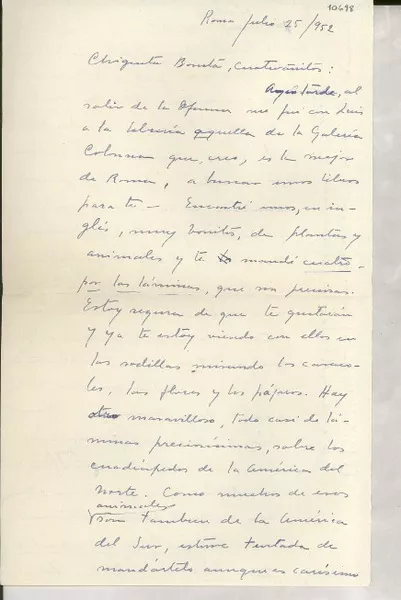 10698
Roma Julio 25/952
Chiquita Bonita, cuatuasitos:
Ayer tarde, al
salir de la Oficina me fui con Luis
a la librería aquella de la Galería
Colonna que, creo, es la mejor
de Roma, a buscar unos libros
para ti - Encontré unos, en in-
glés, muy bonitos, de plantas y
animales y te mandé cuatro,
por las láminas, que son preciosas.
Estoy segura de que te gustarán
y ya te estoy viendo con ellos en
las rodillas mirando los caraco-
les, las flores y los pájaros. Hay
otro maravilloso, todo casi de lá-
minas preciosísimas, sobre los
cuadrúpedos de la América del
Norte. Como muchos de esos
animales
son tambien de la América
del Sur, estuve tentada de
mandártelo aunque es carísimo